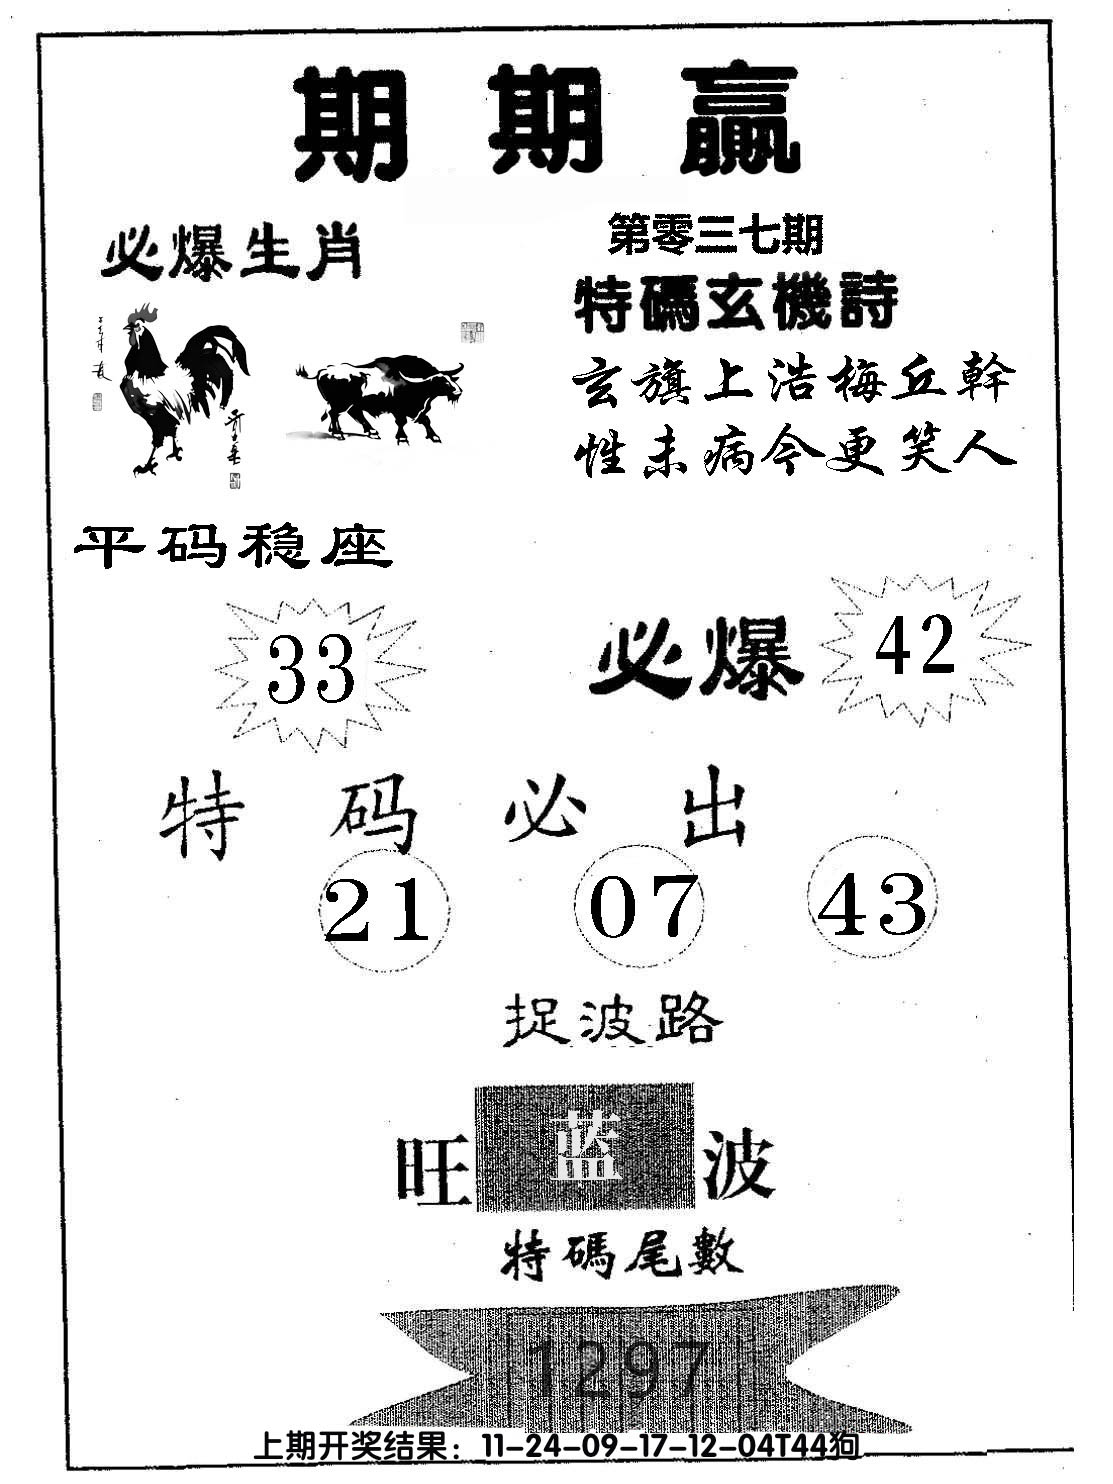 期期赢
必爆生肖
第零三七期
特碼玄機詩
玄旗上浩梅丘幹
性未病今更笑人
平码稳座
33
必爆 42
特码必出
21 07 43
捉波路
旺蓝波
特碼尾數
1297
上期开奖结果：11-24-09-17-12-04T44狗